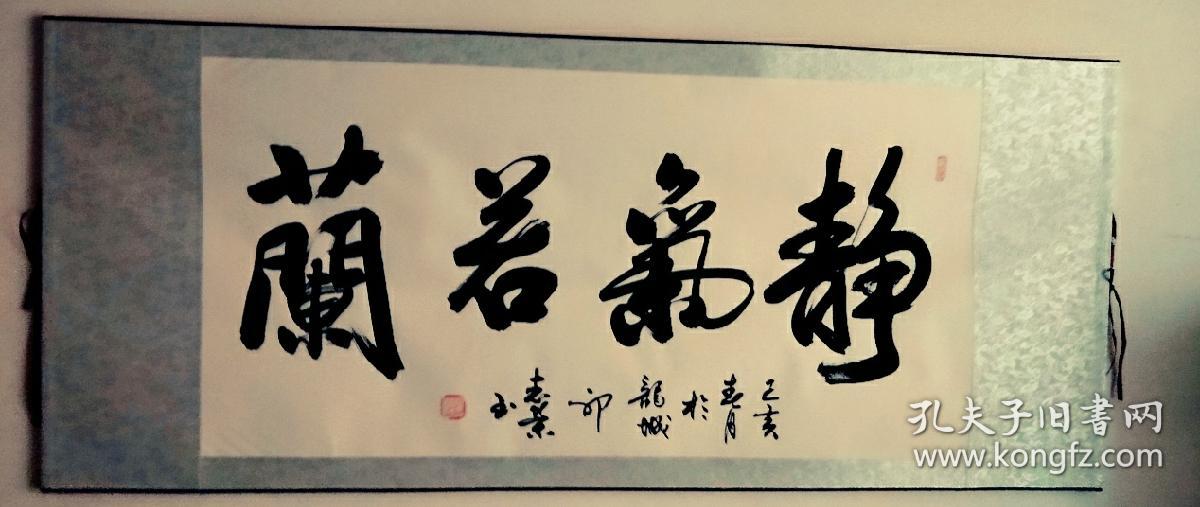 静氣若蘭
己亥
春月
於
龍城
郭
志榮
書
孔夫子旧书网
www.kongfz.com